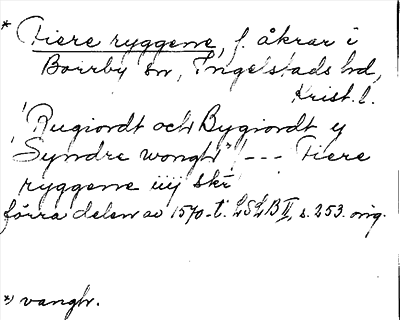 * Tiere ryggene, f. åkrar i
Borrby sn, Ingelstads hd,
Krist. l.
"Rugiordt och Bygiordt y
Syndre wongh*) --- Tiere
ryggene iiij ski
förra delen av 1570-t. LSLB II, s. 253. orig.
*) vangh.